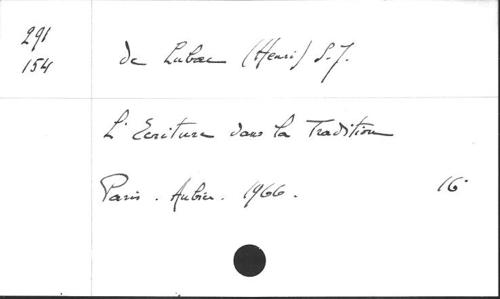 291
154
de Lubac (Henri) S.J.
L'Ecriture dans la Tradition
Paris. Aubier. 1966. 16°